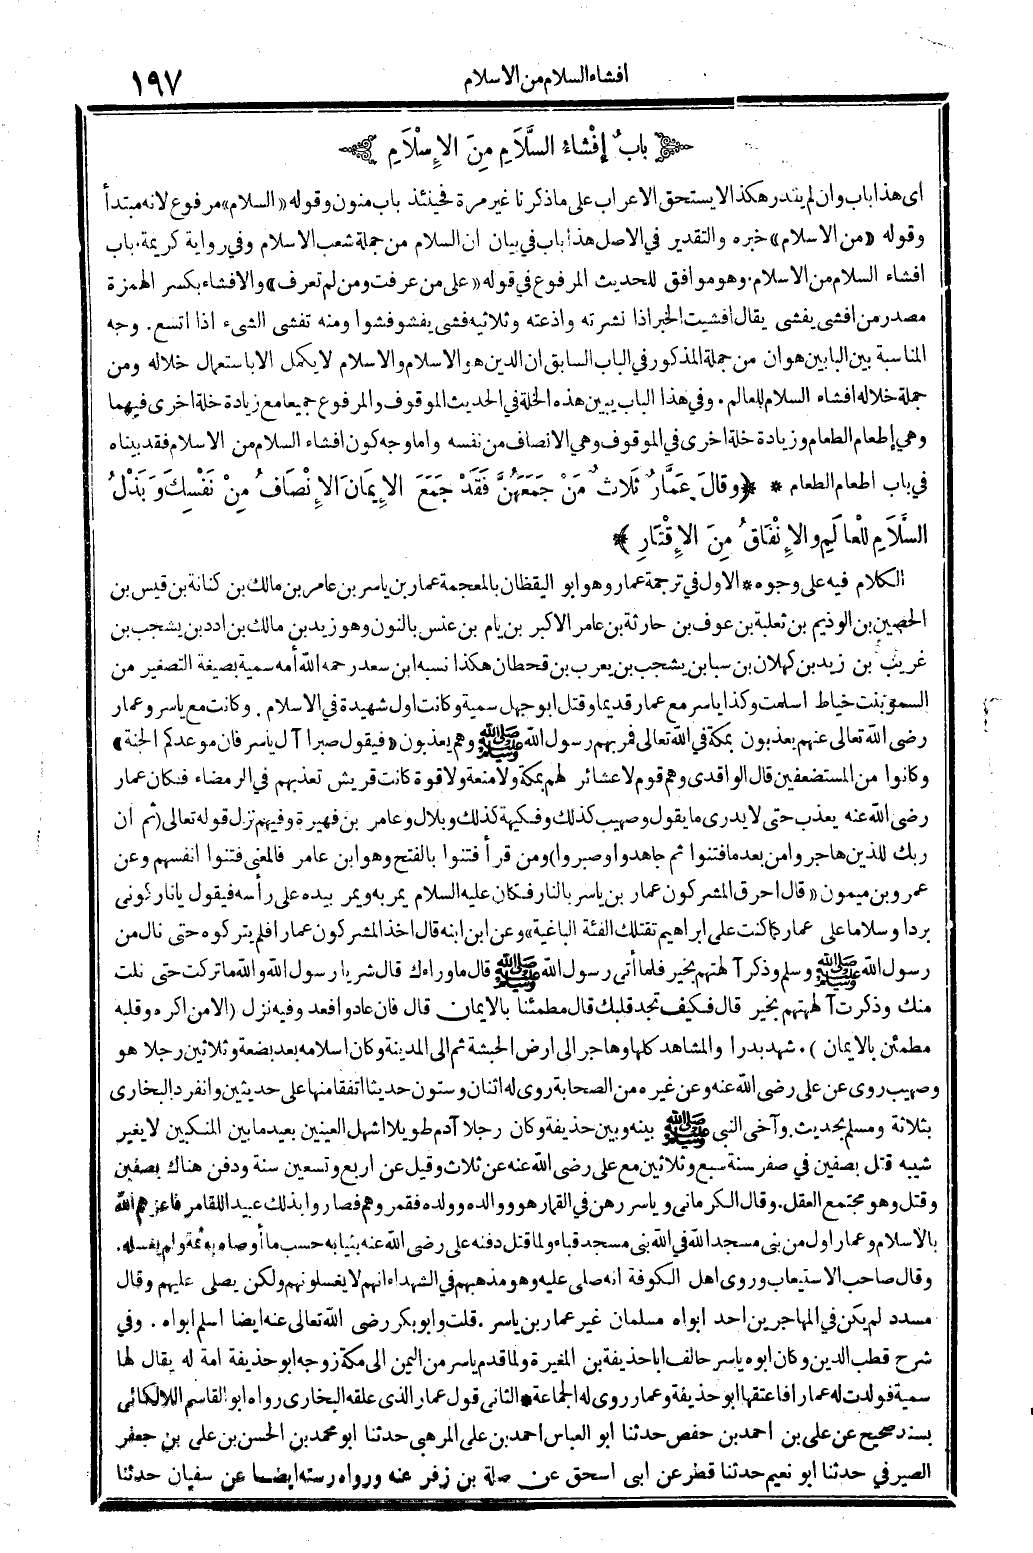 افشاء السلام من الاسلام ١٩٧
باب إفْشاءُ السَّلَامِ مِنَ الإِسْلَامِ
اى هذا باب وان لم يقدر هكذا لا يستحق الاعراب على ما ذكرنا غير مرة فحينئذ باب منون وقوله «السلام» مرفوع لانه مبتدأ
وقوله «من الاسلام» خبره والتقدير في الاصل هذا باب في بيان ان السلام من جملة شعب الاسلام وفي رواية كريمة. باب
افشاء السلام من الاسلام. وهو موافق للحديث المرفوع في قوله «على من عرفت ومن لم تعرف» والافشاء بكسر الهمزة
مصدر من افشى يفشى يقال افشيت الخبر اذا نشرته واذعته وثلاثيه فشى يفشو فشوا ومنه تفشى الشىء اذا اتسع. وجه
المناسبة بين البابين هو ان من جملة المذكور في الباب السابق ان الدين هو الاسلام والاسلام لا يكمل الا باستعمال خلاله ومن
جملة خلاله افشاء السلام للعالم. وفي هذا الباب يبين هذه الخلة في الحديث الموقوف والمرفوع جميعا مع زيادة خلة اخرى فيهما
وهي إطعام الطعام وزيادة خلة اخرى في الموقوف وهي الانصاف من نفسه واما وجه كون افشاء السلام من الاسلام فقد بيناه
في باب اطعام الطعام * ﴿وقالَ عَمَّارٌ ثَلَاثٌ مَنْ جَمَعَهُنَّ فَقَدْ جَمَعَ الإِيمَانَ الإِنْصَافُ مِنْ نَفْسِكَ وَبَذْلُ
السَّلَامِ لِلْعَالَمِ والإِنْفَاقُ مِنَ الإِقْتَارِ *﴾
الكلام فيه على وجوه * الاول في ترجمة عمار وهو ابو اليقظان بالمعجمة عمار بن ياسر بن عامر بن مالك بن كنانة بن قيس بن
الحصين بن الوذيم بن ثعلبة بن عوف بن حارثة بن عامر الاكبر بن يام بن عنس بالنون وهو زيد بن مالك بن ادد بن يشجب بن
غريب بن زيد بن كهلان بن سبا بن يشجب بن يعرب بن قحطان هكذا نسبه ابن سعد رحمه الله أمه سمية بصيغة التصغير من
السمو بنت خياط اسلمت وكذا ياسر مع عمار قديما وقتل ابو جهل سمية وكانت اول شهيدة في الاسلام. وكانت مع ياسر وعمار
رضى الله تعالى عنهم يعذبون بمكة في الله تعالى فمر بهم رسول الله ﷺ وهم يعذبون «فيقول صبرا آل ياسر فان موعدكم الجنة»
وكانوا من المستضعفين قال الواقدى وهم قوم لا عشائر لهم بمكة ولا منعة ولا قوة كانت قريش تعذبهم في الرمضاء فكان عمار
رضى الله عنه يعذب حتى لا يدرى ما يقول وصهيب كذلك وفكيهة كذلك وبلال وعامر بن فهيرة وفيهم نزل قوله تعالى (ثم ان
ربك للذين هاجروا من بعد ما فتنوا ثم جاهدوا وصبروا) ومن قرأ فتنوا بالفتح وهو ابن عامر فالمعنى فتنوا انفسهم وعن
عمرو بن ميمون «قال احرق المشركون عمار بن ياسر بالنار فكان عليه السلام يمر به ويمر بيده على رأسه فيقول يا نار كونى
بردا وسلاما على عمار كما كنت على ابراهيم تقتلك الفئة الباغية» وعن ابن ابنه قال اخذ المشركون عمارا فلم يتركوه حتى نال من
رسول الله ﷺ وسلم وذكر آلهتهم بخير فلما أتى رسول الله ﷺ قال ما وراءك قال شر يا رسول الله والله ما تركت حتى نلت
منك وذكرت آلهتهم بخير قال فكيف تجد قلبك قال مطمئنا بالايمان قال فان عادوا فعد وفيه نزل (الا من اكره وقلبه
مطمئن بالايمان). شهد بدرا والمشاهد كلها وهاجر الى ارض الحبشة ثم الى المدينة وكان اسلامه بعد بضعة وثلاثين رجلا هو
وصهيب روى عن على رضى الله عنه وعن غيره من الصحابة روى له اثنان وستون حديثا اتفقا منها على حديثين وانفرد البخارى
بثلاثة ومسلم بحديث. وآخى النبى ﷺ بينه وبين حذيفة وكان رجلا آدم طويلا اشهل العينين بعيد ما بين المنكبين لا يغير
شيبه قتل بصفين في صفر سنة سبع وثلاثين مع على رضى الله عنه عن ثلاث وقيل عن اربع وتسعين سنة ودفن هناك بصفين
وقتل وهو مجتمع العقل. وقال الكرمانى وياسر رهن في القمار هو ووالده وولده فقمروهم فصاروا بذلك عبيد اللقامر فاعزهم الله
بالاسلام وعمار اول من بنى مسجد الله في الله بنى مسجد قباء ولما قتل دفنه على رضى الله عنه بثيابه حسب ما أوصاه به ثمة ولم يغسله.
وقال صاحب الاستيعاب وروى اهل الكوفة انه صلى عليه وهو مذهبهم في الشهداء انهم لا يغسلونهم ولكن يصلى عليهم وقال
مسدد لم يكن في المهاجرين احد ابواه مسلمان غير عمار بن ياسر. قلت وابو بكر رضى الله تعالى عنه ايضا اسلم ابواه. وفي
شرح قطب الدين وكان ابوه ياسر حالف ابا حذيفة بن المغيرة ولما قدم ياسر من اليمن الى مكة زوجه ابو حذيفة امة له يقال لها
سمية فولدت له عمارا فاعتقها ابو حذيفة وعمار روى له الجماعة * الثانى قول عمار الذى علقه البخارى رواه ابو القاسم اللالكائى
بسند صحيح عن على بن احمد بن حفص حدثنا ابو العباس احمد بن على المرهبى حدثنا ابو محمد بن الحسن بن على بن جعفر
الصيرفي حدثنا ابو نعيم حدثنا قطر عن ابى اسحق عن صلة بن زفر عنه ورواه رسته ايضا عن سفيان حدثنا